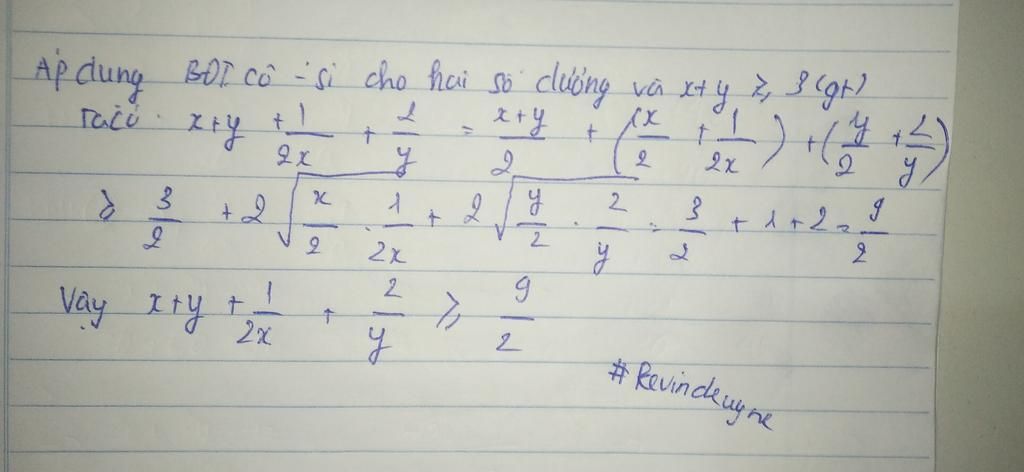 Áp dụng BĐT cô-si cho hai số dương và x+y ≥ 3 (gt)
Ta có: x+y + 1/2x + 2/y = x+y/2 + (x/2 + 1/2x) + (y/2 + 2/y)
≥ 3/2 + 2√(x/2 · 1/2x) + 2√(y/2 · 2/y) = 3/2 + 1 + 2 = 9/2
Vậy x+y + 1/2x + 2/y ≥ 9/2